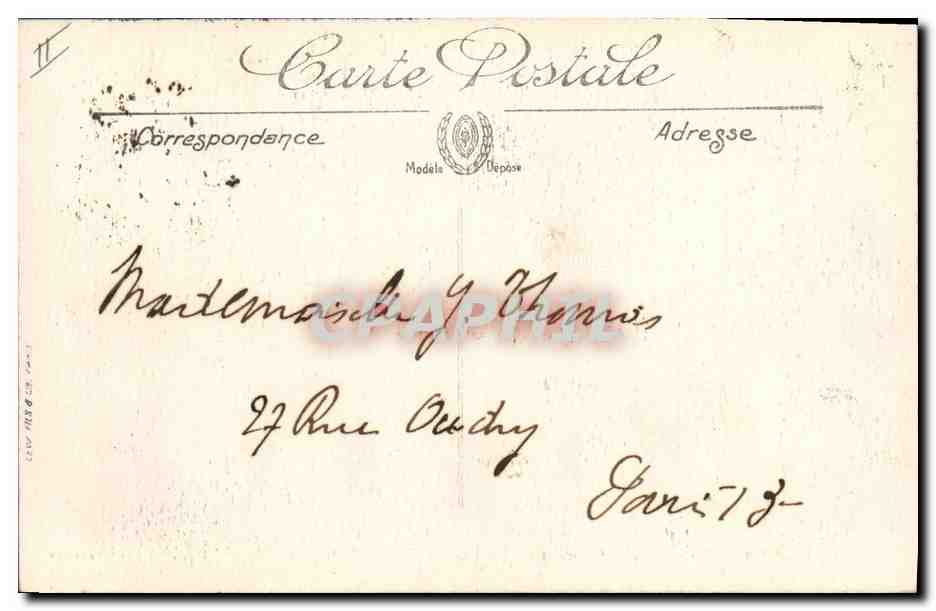 II
Carte Postale
Correspondance
Adresse
Modèle Déposé
Mademoiselle Y. Thomas
CPAPHIL
27 Rue Oudry
Paris 13